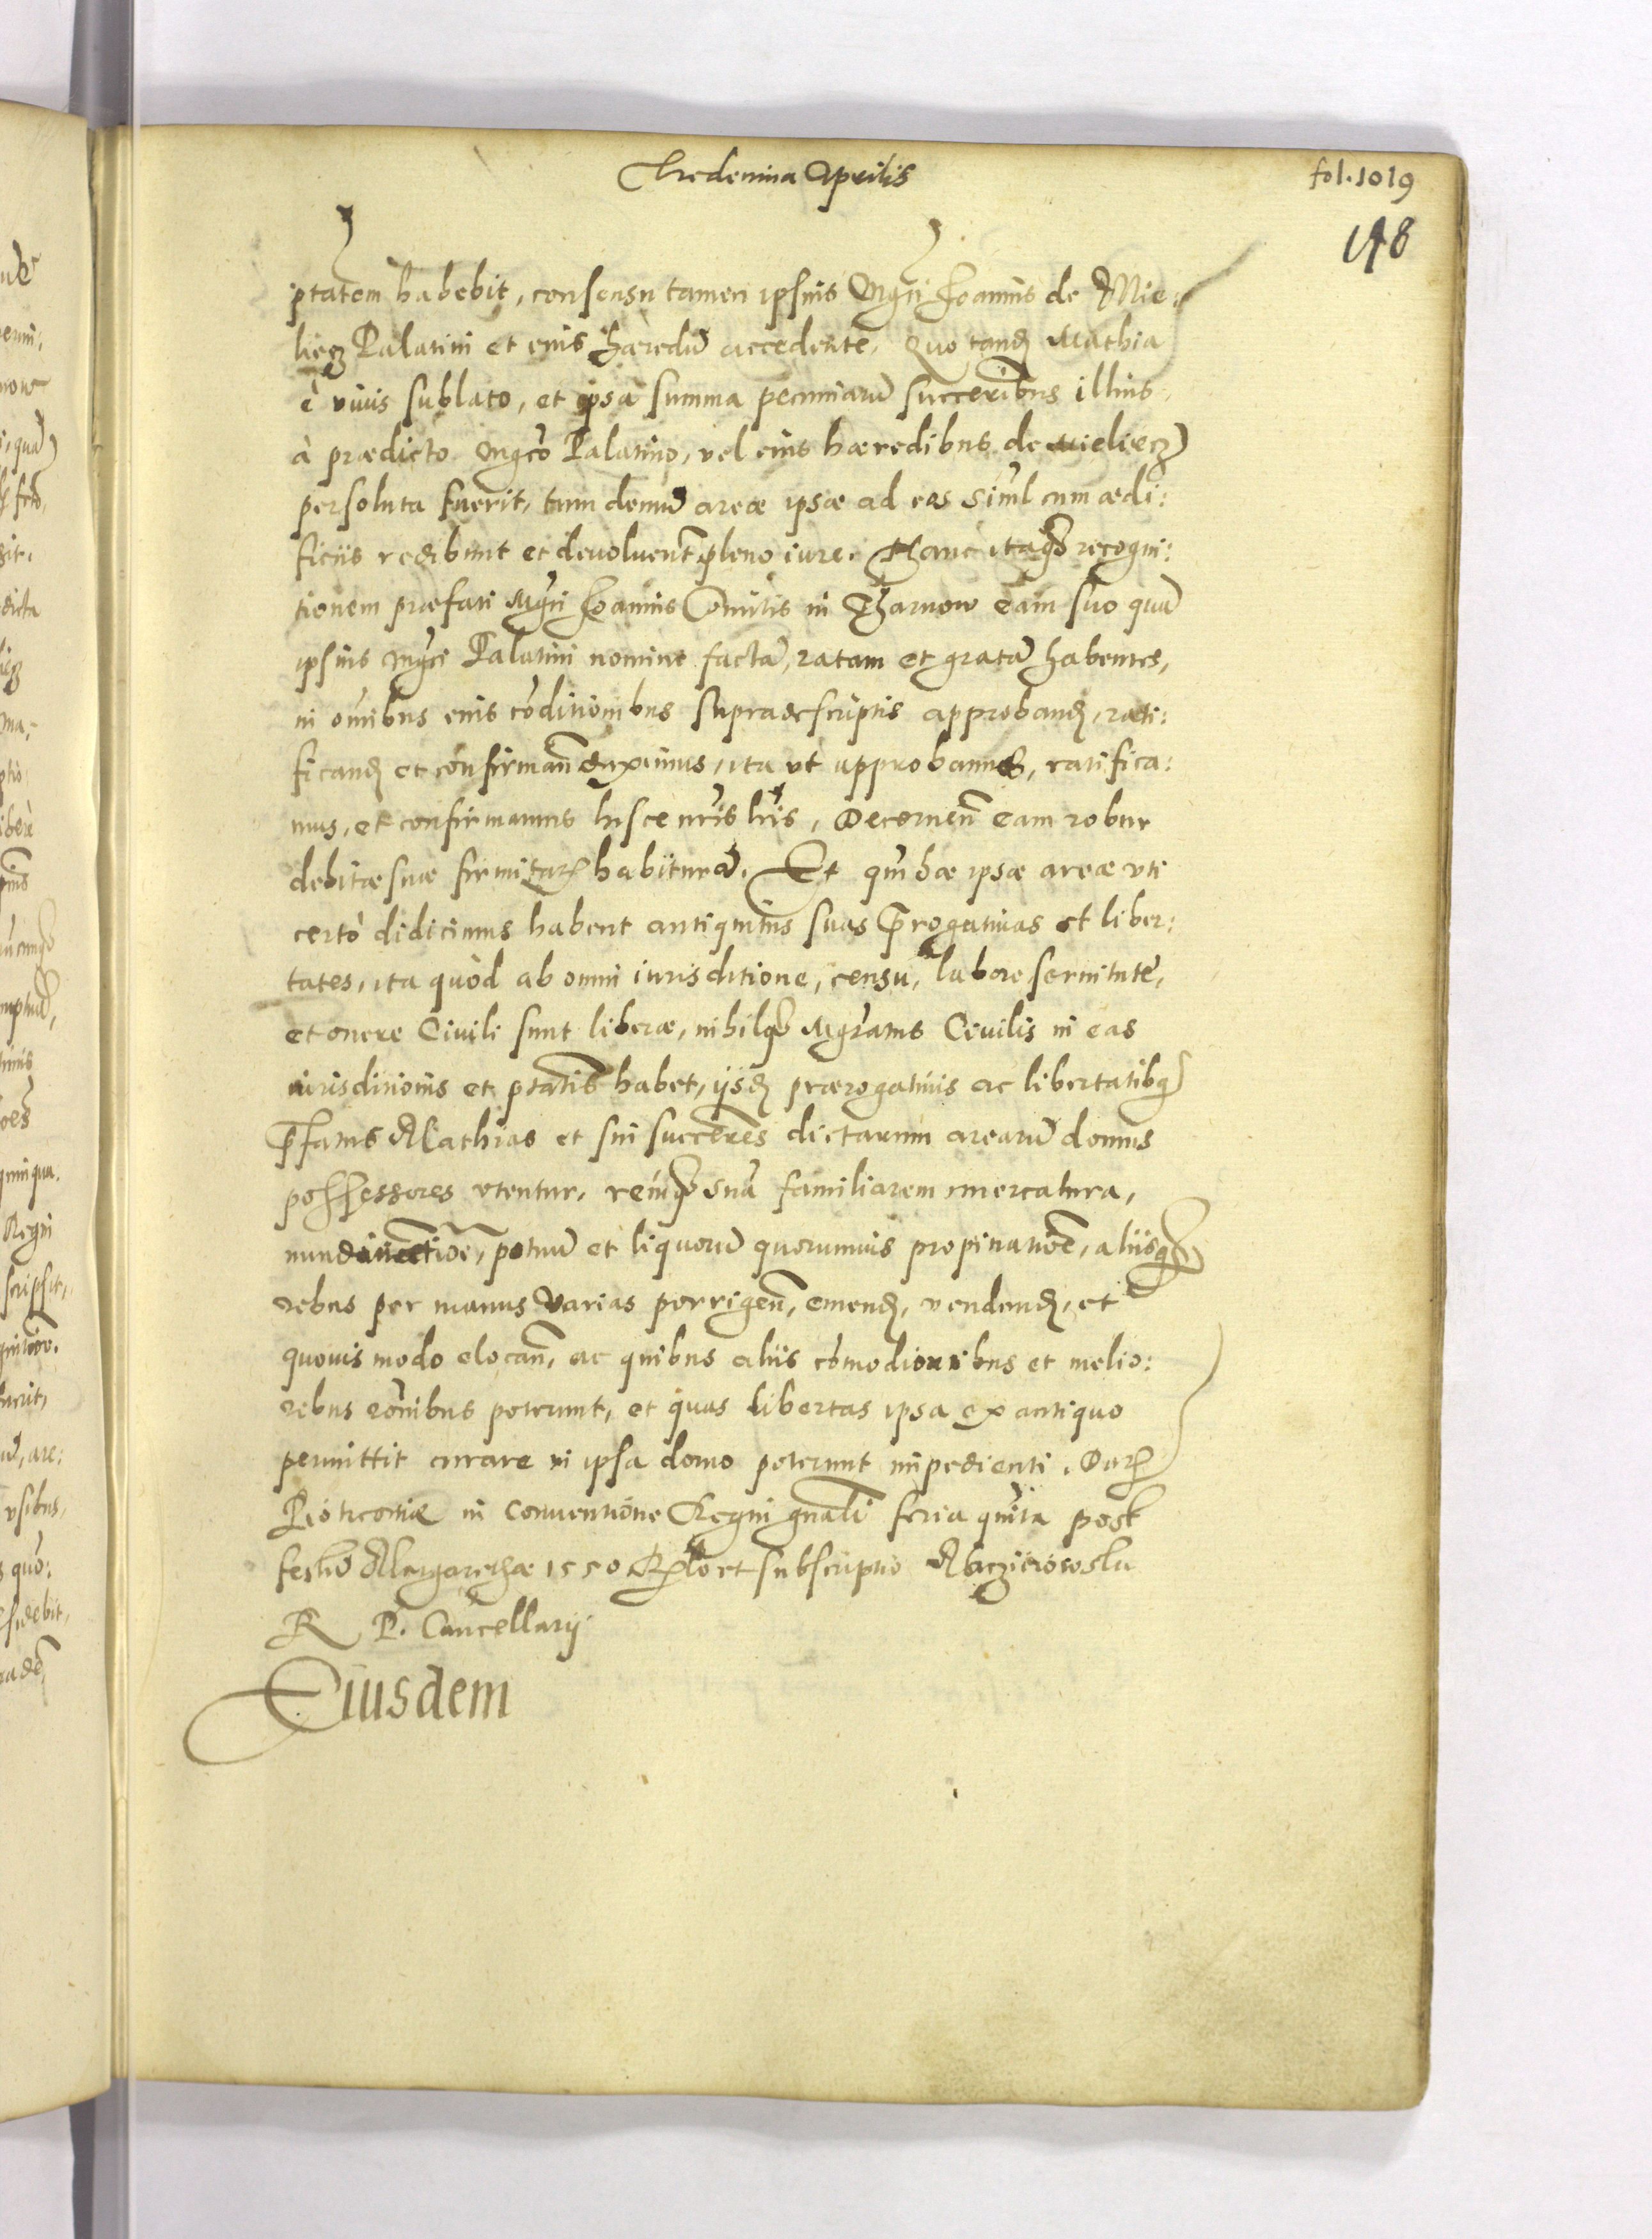 Tredecima Aprilis
fol. 1019
148
ptatem habebit, consensu tamen ipsius Mgci Joannis de Mie:
liecz Palatini et eius hæredū accedente, Quo tandē Mathia
è viuis sublato, et ipsa summa pecuniarū succeribus illius
à prædicto Mgco Palatino, vel eius hæredibus de Mieliecz
persoluta fuerit, tum demū areæ ipsæ ad eos simul cum ædi:
ficiis redibunt et deuoluent pleno iure. Hanc itaq recogni:
tionem præfati Mgci Joannis Comitis in Tharnow eam suo quā
ipsius Mgci Palatini nomine factā, ratam et gratā habentes,
in omībus eius cōditionibus supradescriptis approband, rati:
ficand et cōnfirmand duximus, ita vt approbamus, ratifica:
mus, et confirmamus hisce nris lris, Decernen eam robur
debitæ suæ firmitatis habiturā. Et qui hæ ipsæ areæ vti
certò didicimus habent antiquitus suas progatiuas et liber:
tates, ita quòd ab omni iurisditione, censu, labore seruitute,
et onere Ciuili sunt liberæ, nihilq Mgratus Ciuilis in eas
iurisditionis et ptatis habet, ijsd prærogatiuis ac libertatibq
pfatus Mathias et sui succeres dictarum arearū domus
possessores vtentur, remq suā familiarem mercatura,
potuū et liquorū quorumuis propinatioe, aliisq
rebus per manus varias porrigen, emend, vendend, et
quouis modo elocan, ac quibus aliis cōmodioribus et melio:
ribus rōnibus poterunt, et quas libertas ipsa ex antiquo
permittit curare in ipsa domo poterunt impedienti. Datis
Piotrcouiæ in Conuentione Regni gnali feria quīta post
festū Margarethæ 1550 Rlo et subscriptio
R P. Cancellarij
Eiusdem